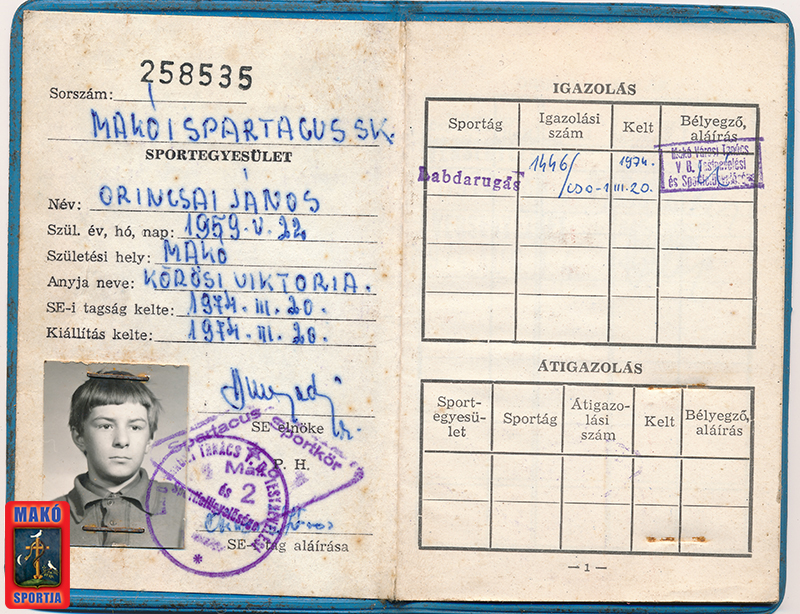 258535
Sorszám:
MAKÓI SPARTACUS SK.
SPORTEGYESÜLET
Név: ORINCSAI JÁNOS
Szül. év, hó, nap: 1959. V. 22
Születési hely: MAKÓ
Anyja neve: KŐRÖSI VIKTORIA.
SE-i tagság kelte: 1974. III. 20.
Kiállítás kelte: 1974. III. 20.
SE elnöke
Spartacus Sportkör
Makó
P. H.
és 2
SE-i tag aláírása
MAKÓ
SPORTJA
IGAZOLÁS
Sportág Igazolási szám Kelt Bélyegző, aláírás
Labdarugás 1446/CSO-1 1974. III. 20.
Makó Városi Tanács
V. B. Testnevelési
és Sport
ÁTIGAZOLÁS
Sport-egyesü-let Sportág Átigazo-lási szám Kelt Bélyegző, aláírás
— 1 —